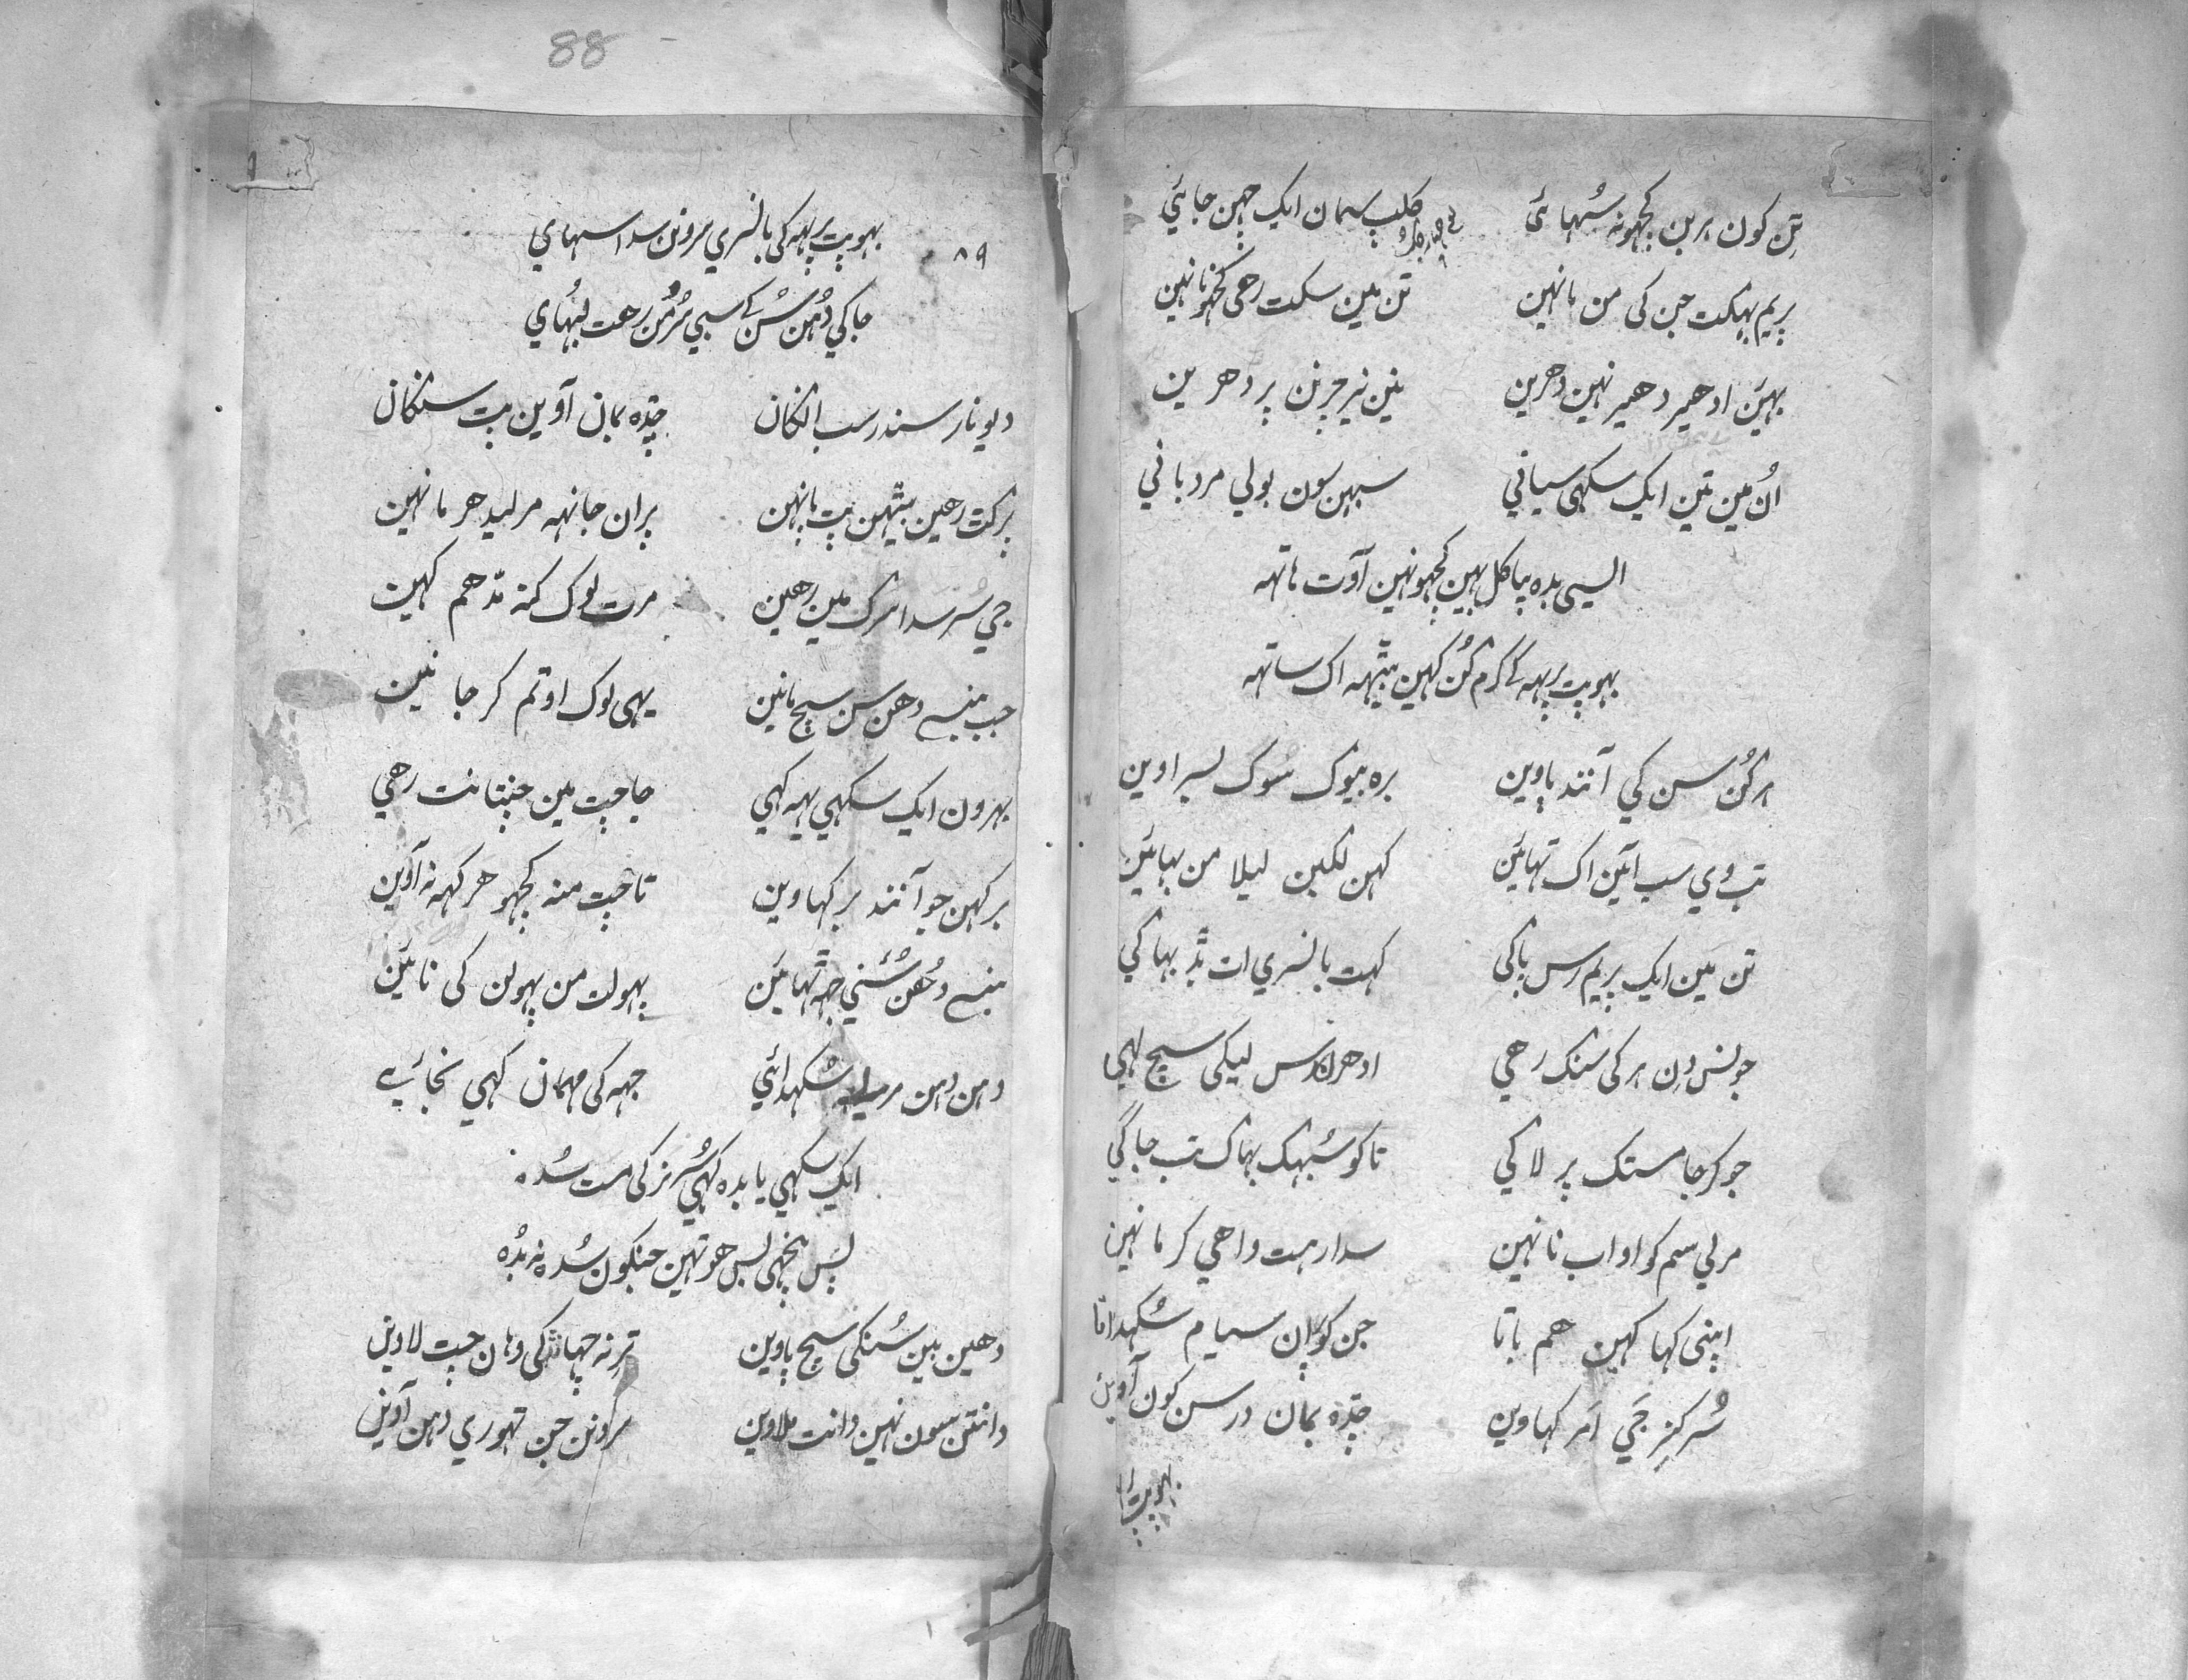 تِن کون ہربن کچھونہ سُہائی کلپ سمان ایک چھن جائی
پریم بہکت جن کی من مانہین تن مین سکت رھی کچھونانہین
بہین ادھیر دھیر نہین دھرین نین نیر چرنن پر دھرین
اُن مین تین ایک سکھی سیانی سبہن سون بولی مردبانی
ایسی بدہ بیاکل بہین کچھونہین آوت ہاتھہ
بہوپت پہہ کے کرم کُن کہین بیٹھہ اک ساتھہ
ہرکُن سن کی آنند پاوین برہ بیوک سُوک بسراوین
تب وی سب آئین اک ٹھائین کہن لکین لیلا من بہائین
تن مین ایک پریم رس پاکی کہت بانسری ات بڈبہاکی
جو نس دِن ہرکی سنک رھی ادھرن رس لیکی سیج لہی
جو کرجا مستک پر لاکی تاکو سُبہک بہاک تب جاگی
مرلی سم کواو اب نانہین سدا رہت واھی کر مانہین
اپنی کہا کہین ھم باتا جن کو پان سیام سُکھداتا
سُر کنر جَی اَمر کہاوین چڈہ بمان درسن کون آوین
بہوپت پہہ
88
۸۹
بہوپت پہہ کی بانسری سرونن سدا سہای
جاکی دُہن سُن کے سبی سُرمُن رھت لبہای
دیونار سندر سب النکان چڈہ بمان آوین پت سنکان
پرکٹ رھین بیٹھین پت پانہن پران جانہہ مرلیدھر مانہین
جی سُر سدا سُرک مین رھین مرت لوک کنہ مدھم کہین
جب بنسے دھن سن سیج مانین یہی لوک اوتم کر جانین
بہرون ایک سکھی یہہ کہی جاچت مین چنتا نت رھی
برکہن جو آنند برکہاوین تاچت منہ کچھو ھرکہہ نہ آوین
بنسے دُھن سُنی جہہ ٹھائین بہولت من پہولن کی نائین
دہن دہن مرلیہ سُکھدائی جہہ کی مہمان کہی نجائے
ایک سکھی یا بدہ کہی سُر نر کی مت سُدہ
پس پنچھی بس ھوتہین جنکون سُدہ نہ بدُہ
دھین بین سُنکی سیج پاوین ترنہ چہانڈکی وہان چت لاوین
دانتن سون نہین دانت ملاوین سرونن جن تہوری دہن آوین